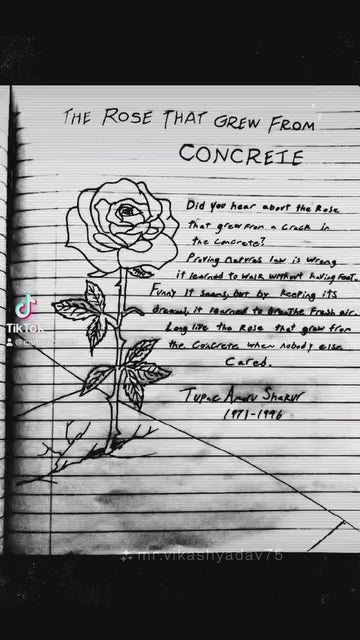 THE ROSE THAT GREW FROM
CONCRETE
Did you hear about the Rose
that grew from a crack in
the concrete?
Proving natures law is wrong
it learned to walk without having feet.
Funny it seems, but by keeping its
dreams, it learned to breathe fresh air.
Long live the Rose that grew from
the concrete when nobody else
cared.
Tupac Amaru Shakur
1971-1996
TikTok
mr.vikashyadav75